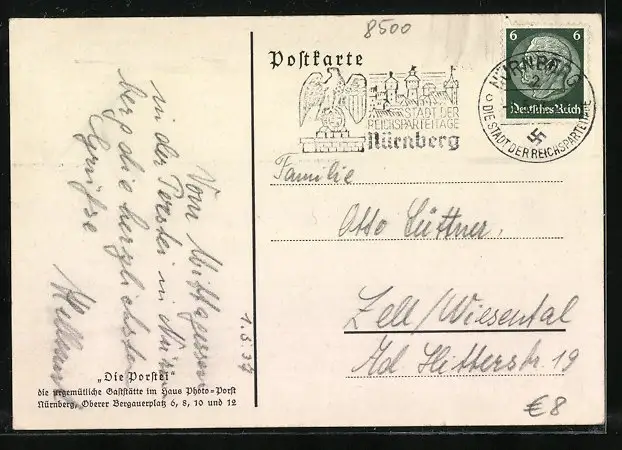 8500
Postkarte
6 6
Deutsches Reich
NÜRNBERG 2
DIE STADT DER REICHSPARTEITAGE
STADT DER
REICHSPARTEITAGE
Nürnberg
Familie
Otto Lüttner.
Zell/Wiesental
Ad Hitlerstr 19
€8
Vom Mittagessen
in der Porstei in Nürn
berg die herzlichsten
Grüße
1.8.37
„Die Porstei“
die urgemütliche Gaststätte im Haus Photo=Porst
Nürnberg, Oberer Bergauerplatz 6, 8, 10 und 12